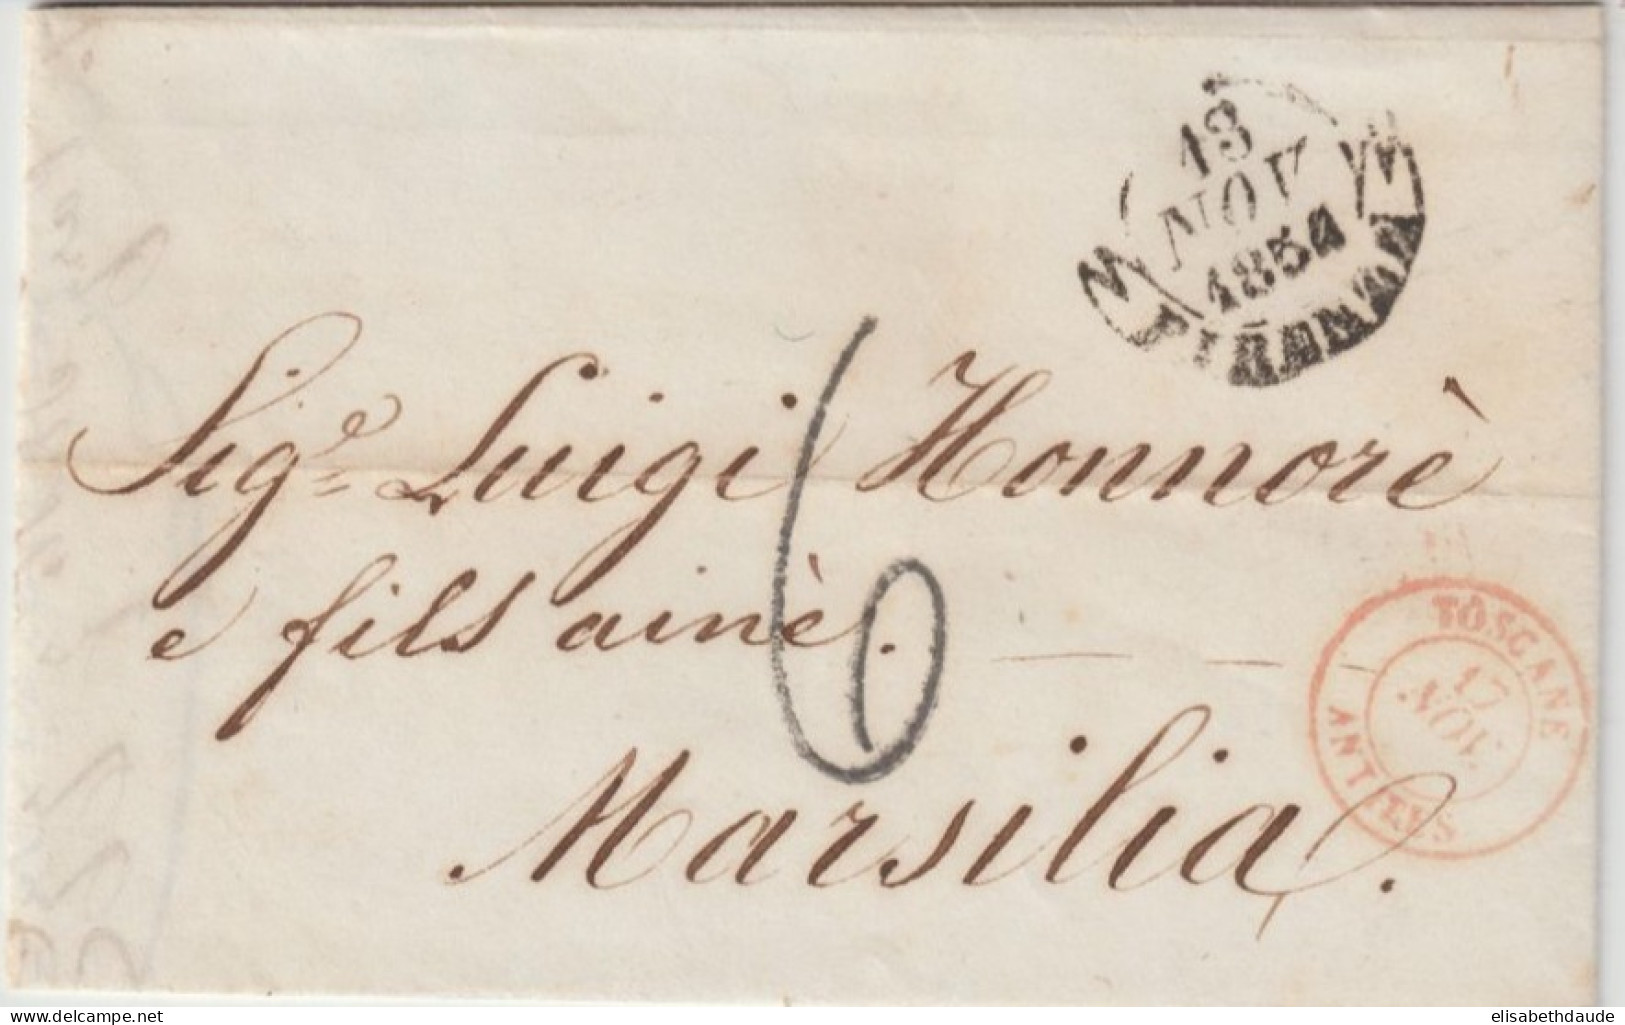 13
NOV
1854
FIRENZE
Sig.e Luigi Honnorè
e fils ainè.
6
Marsilia.
TOSCANE
17
NOV.
ANTIBES
delcampe.net
elisabethdaude